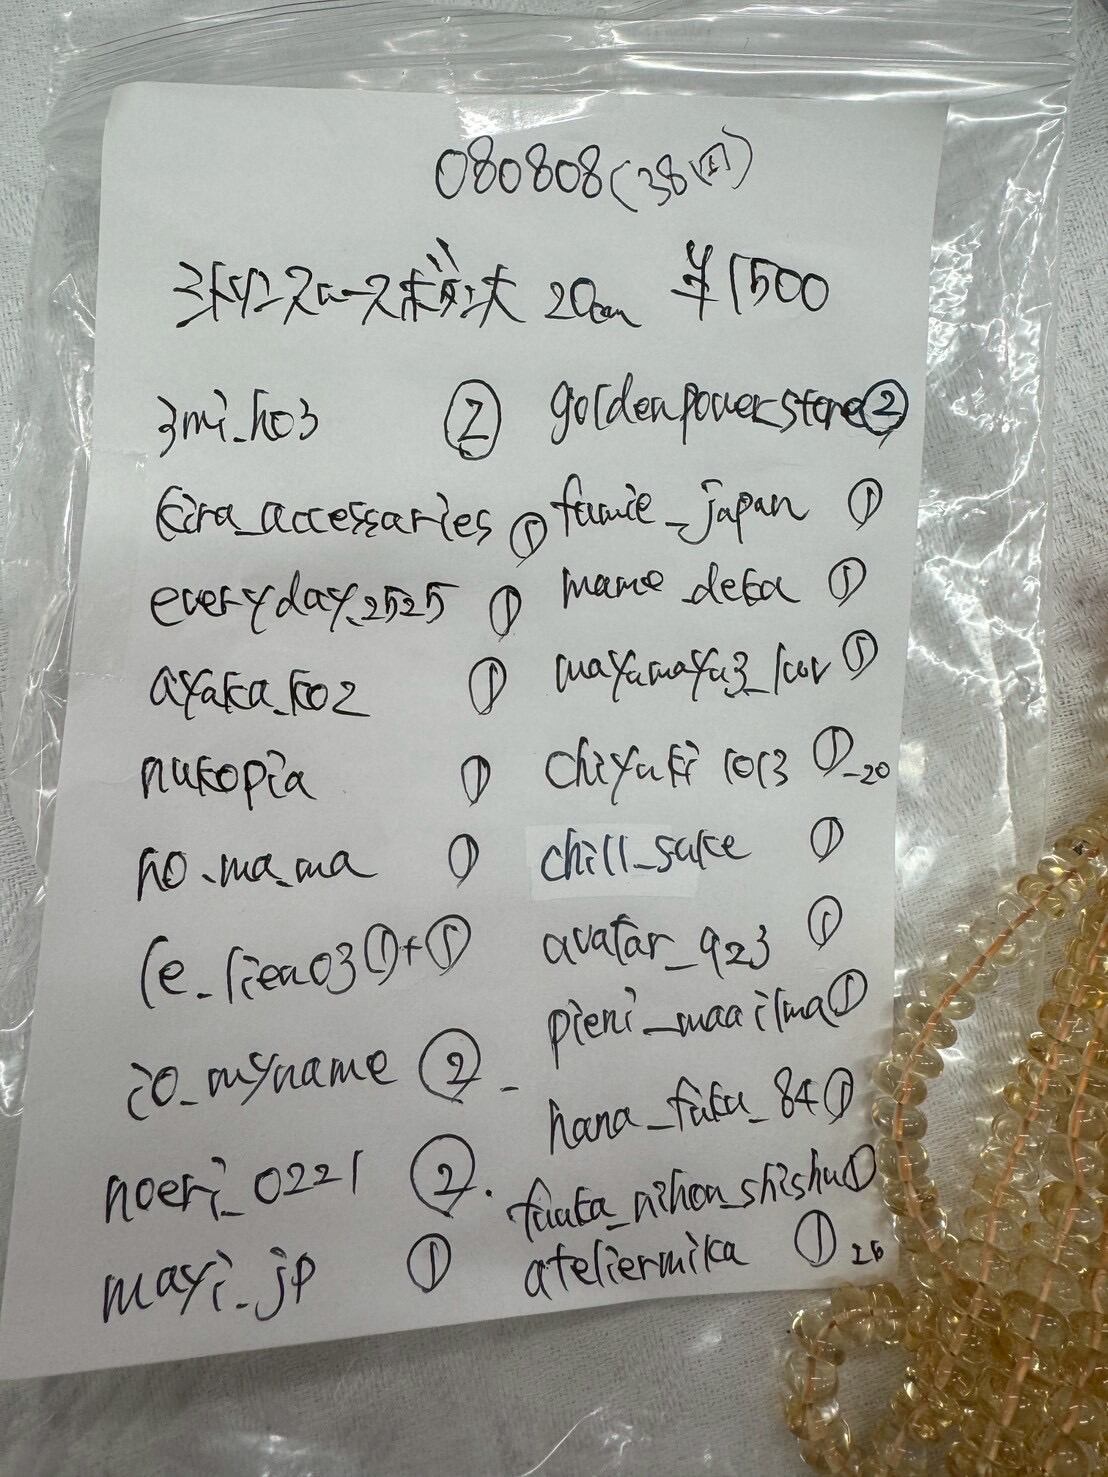 080808(38回)
20cm ¥1500
3mi_ho3 ②
kira_accessaries ①
everyday_2525 ①
ayaka_ko2 ①
nukopia ①
ho_ma_ma ①
①+①
io_myname ② -
noeri_0221 ②.
mayi_jp ①
goldenpowerstone②
fumie_japan ①
mame_deka ①
mayumayu3_luv ①
chiyuki 1013 ①-20
chill_sake ①
avatar_923 ①
pieni_maailma①
hana_fuku_84①
_nihon_shishu①
ateliermika ①